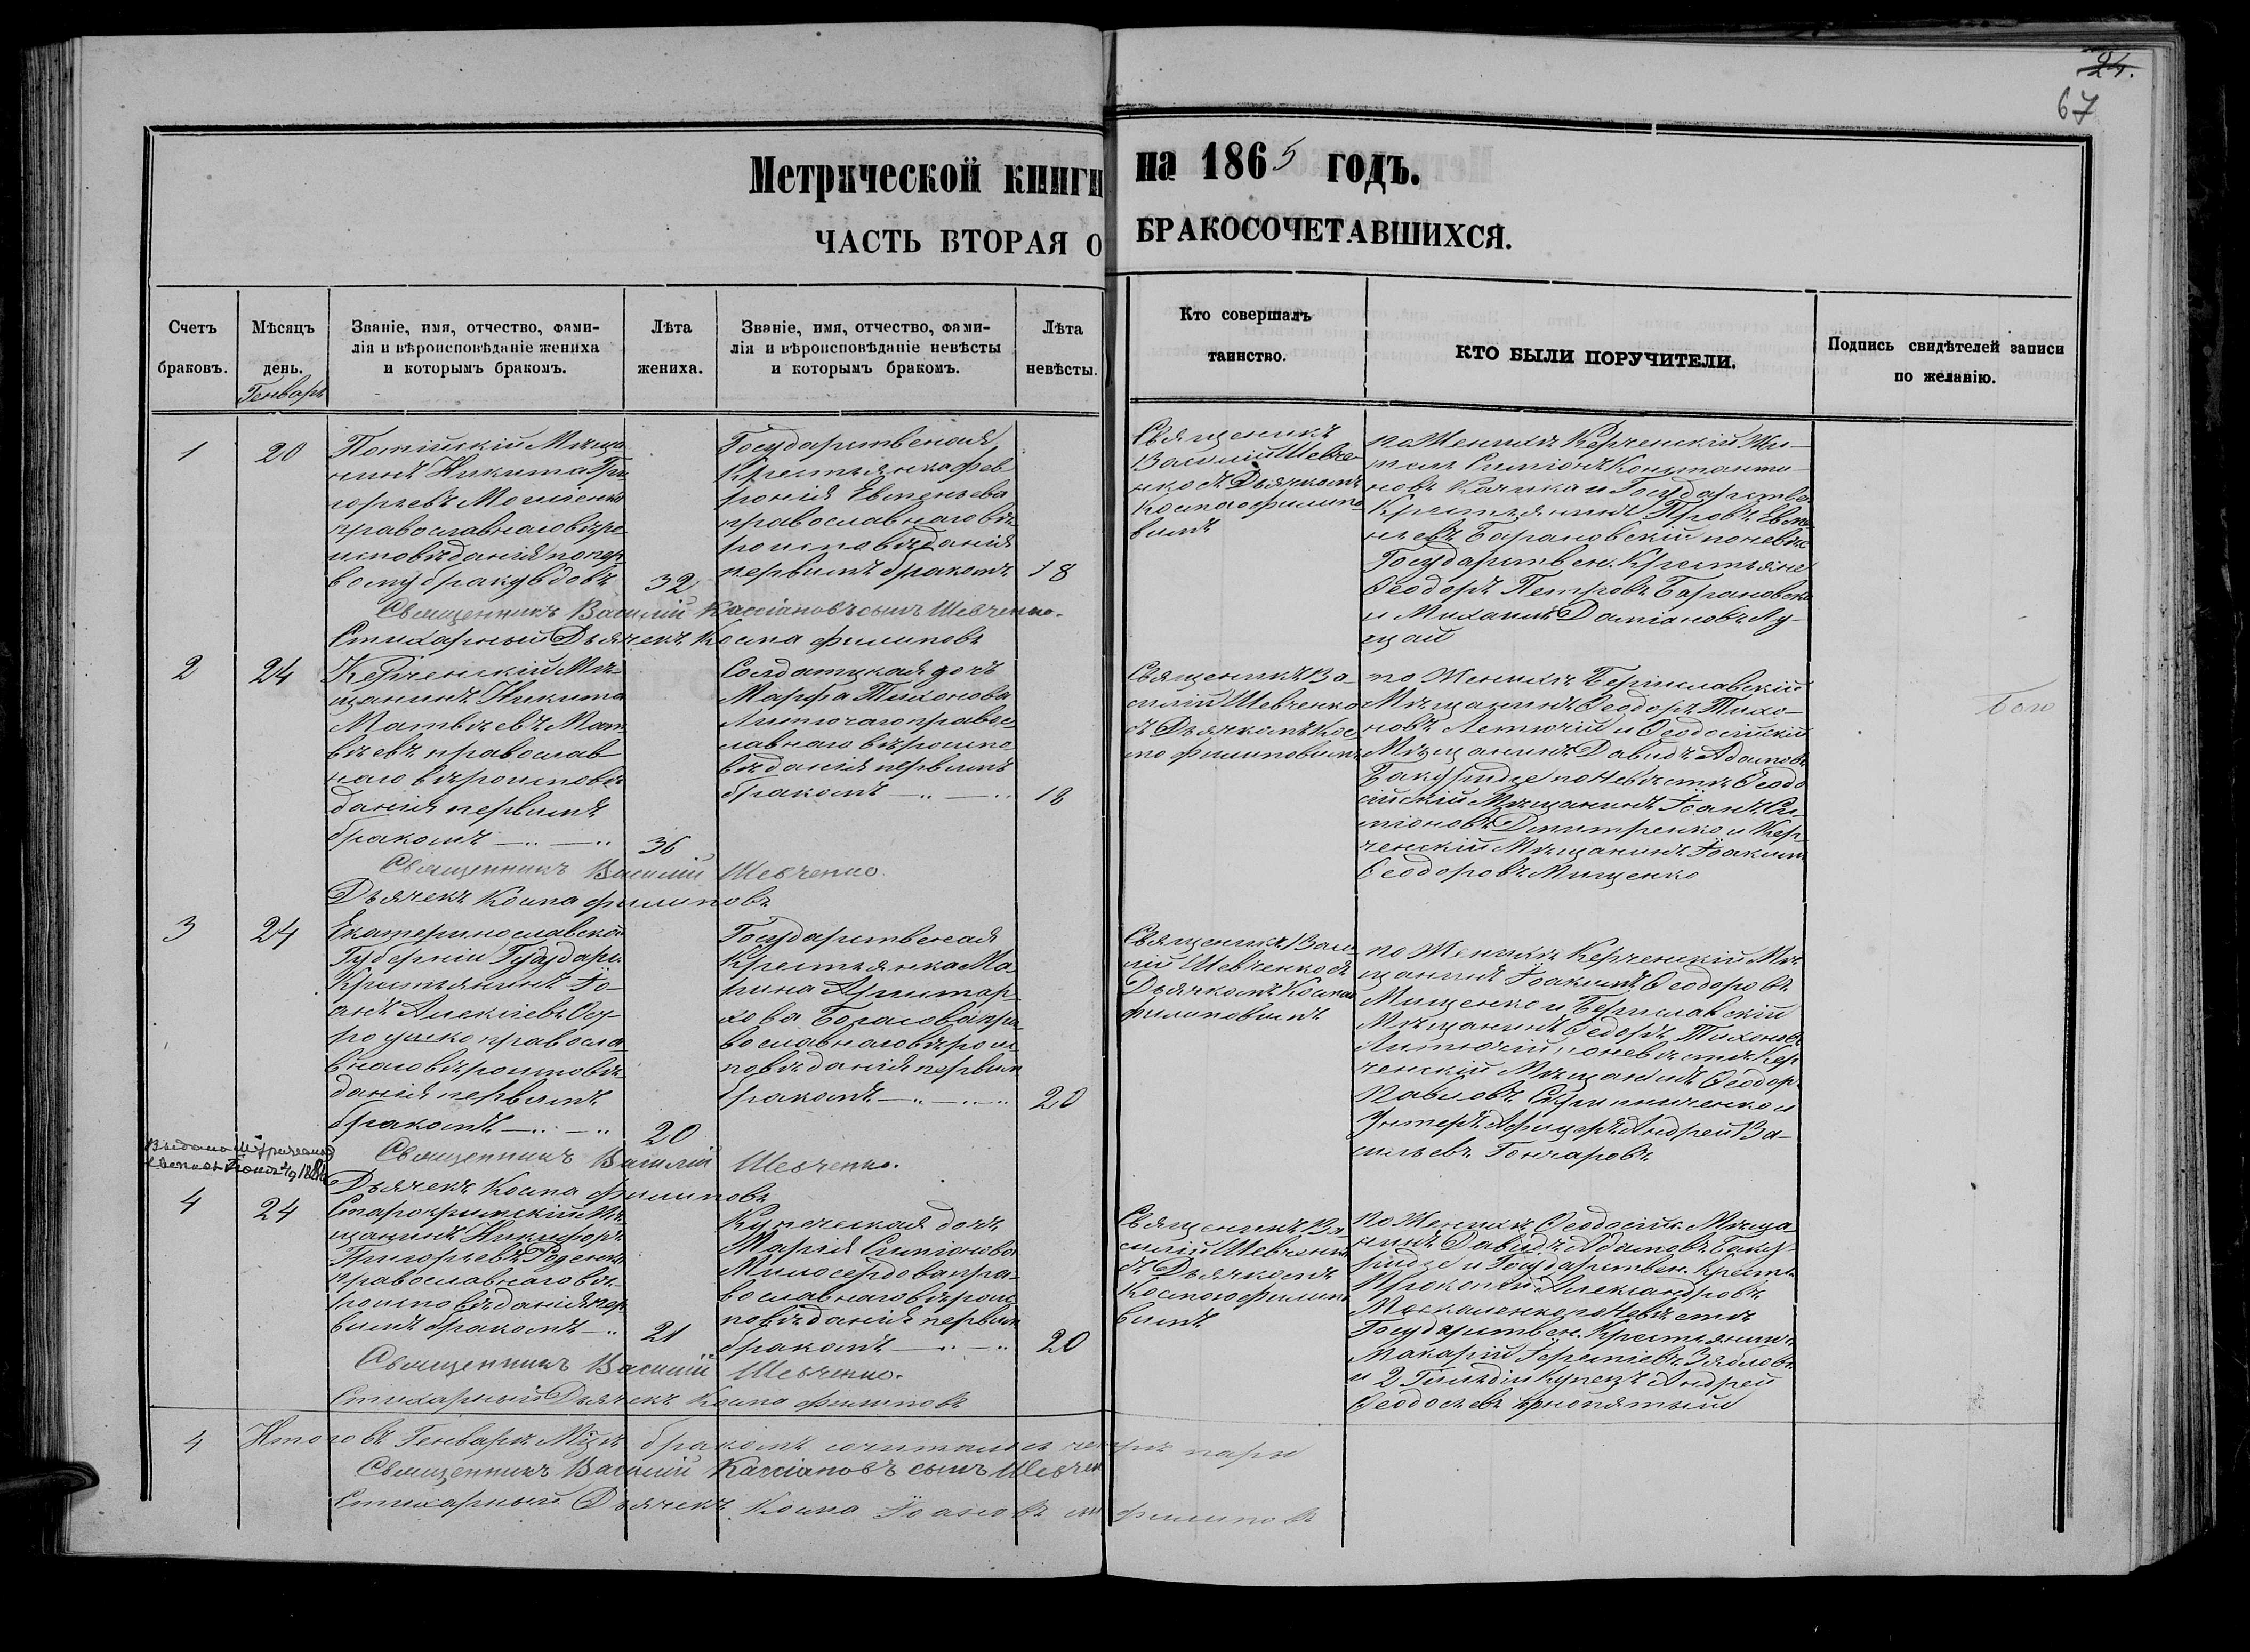 24.
67
Метрической книги на 1865 годъ.
ЧАСТЬ ВТОРАЯ О БРАКОСОЧЕТАВШИХСЯ.
Счетъ браковъ.
Мѣсяцъ день.
Генварь
Званіе, имя, отчество, фами-
лія и вѣроисповѣданіе жениха
и которымъ бракомъ.
Лѣта жениха.
Званіе, имя, отчество, фами-
лія и вѣроисповѣданіе невѣсты
и которымъ бракомъ.
Лѣта невѣсты.
Кто совершалъ таинство.
КТО БЫЛИ ПОРУЧИТЕЛИ.
Подпись свидѣтелей записи
по желанію.
1
20
Мѣща
нинъ Никита Гри
горьевъ
православнаго вѣро
исповѣданія по пер
вому браку вдовъ
32
Государственая
Крестьянка Фев
ронія Евгеньева
православнаго вѣ
роисповѣданія
первымъ бракомъ
18
Священикъ
Василій Шевче
нко съ Дьячкомъ
Космою Филипо
вымъ
по Женихѣ Керченскій Жи-
тель Симіонъ Константи-
новъ и Государстве
Крестьянинъ
Барановскій по невѣс
Государствен. Крестьяне
Ѳеодоръ Петровъ Барановск
и Михаилъ Даміановъ Лу-
цай
Священникъ Василій Кассіановъ сынъ Шевченко.
Стихарный Дьячекъ Косма Филиповъ
2
24
Керченскій Мѣ-
щанинъ Никита
Матвѣевъ Мат
вѣевъ православ
наго вѣроисповѣ
данія первымъ
бракомъ
36
Солдатская дочь
Марфа Тихонова
Литючаго правос
лавнаго вѣроиспо
вѣданія первымъ
бракомъ
18
Священикъ Ва-
силій Шевченко
съ Дьячкомъ Кос
мо Филиповымъ
по Женихѣ Бериславскій
Мѣщанинъ Ѳеодоръ Тихо-
новъ Летючій и Ѳеодосійскій
Мѣщанинъ Давидъ Адамовъ
Бакуридзе по Невѣстѣ Ѳеодо
сійскій Мѣщанинъ Іоанъ Си
міоновъ Дмитренко и Кер
ченскій Мѣщанинъ Іоакимъ
Ѳеодоровъ Мищенко
Священникъ Василій Шевченко.
Дьячекъ Косма Филиповъ
3
24
Екатеринославской
Губерніи Гусудари.
Крестьянинъ Іо-
анъ Алексіевъ
православ
внаго вѣроисповѣ
данія первымъ
бракомъ
20
Государственая
Крестьянка Ма
рина Аристар
хова Богасова пра
вославнаго вѣроис
повѣданія первым
бракомъ
20
Священикъ Васи
лій Шевченко съ
Дьячкомъ Космою
Филиповымъ
по Женихѣ Керченскій Мѣ
щанинъ Іоакимъ Ѳеодоровъ
Мищенко и Бериславскій
Мѣщанинъ Ѳедоръ Тихоновъ
Литючій по невѣстѣ Кер
ченскій Мѣщанинъ Ѳеодоръ
Павловъ и
Унтеръ Афицеръ Андрей Ва-
сильевъ Гончаровъ
Священникъ Василій Шевченко.
Дьячекъ Косма Филиповъ
4
24
Старокримскій Мѣ
щанинъ Никифоръ
Григорьевъ Реденко
православнаго вѣ-
роисповѣданія пер
вымъ бракомъ
21
Купеческая дочь
Марія Симіонова
Милосердова пра-
вославнаго вѣроис
повѣданія первым
бракомъ
20
Священикъ Ва
силій Шевченко
съ Дьячкомъ
Космою Филипо
вымъ
по Женихѣ Ѳеодосійк. Мѣща
нинъ Давидъ Адамовъ Баку
ридзе и Государствен. Кресть
Прокопій Александровъ
Москаленко по Невѣстѣ
Государствен. Крестьянинъ
Макарій Іереміевъ Зябловъ
и 2 Гильдіи Купецъ Андрей
Ѳеодосьевъ
Священникъ Василій Шевченко.
Стихарный Дьячекъ Косма Филиповъ
4
Итого въ Генварѣ Мцѣ бракомъ сочитались четыре пары
Священникъ Василій Кассіановъ сынъ Шевчен
Стихарный Дьячекъ Косма Іоановъ сы Филиповъ